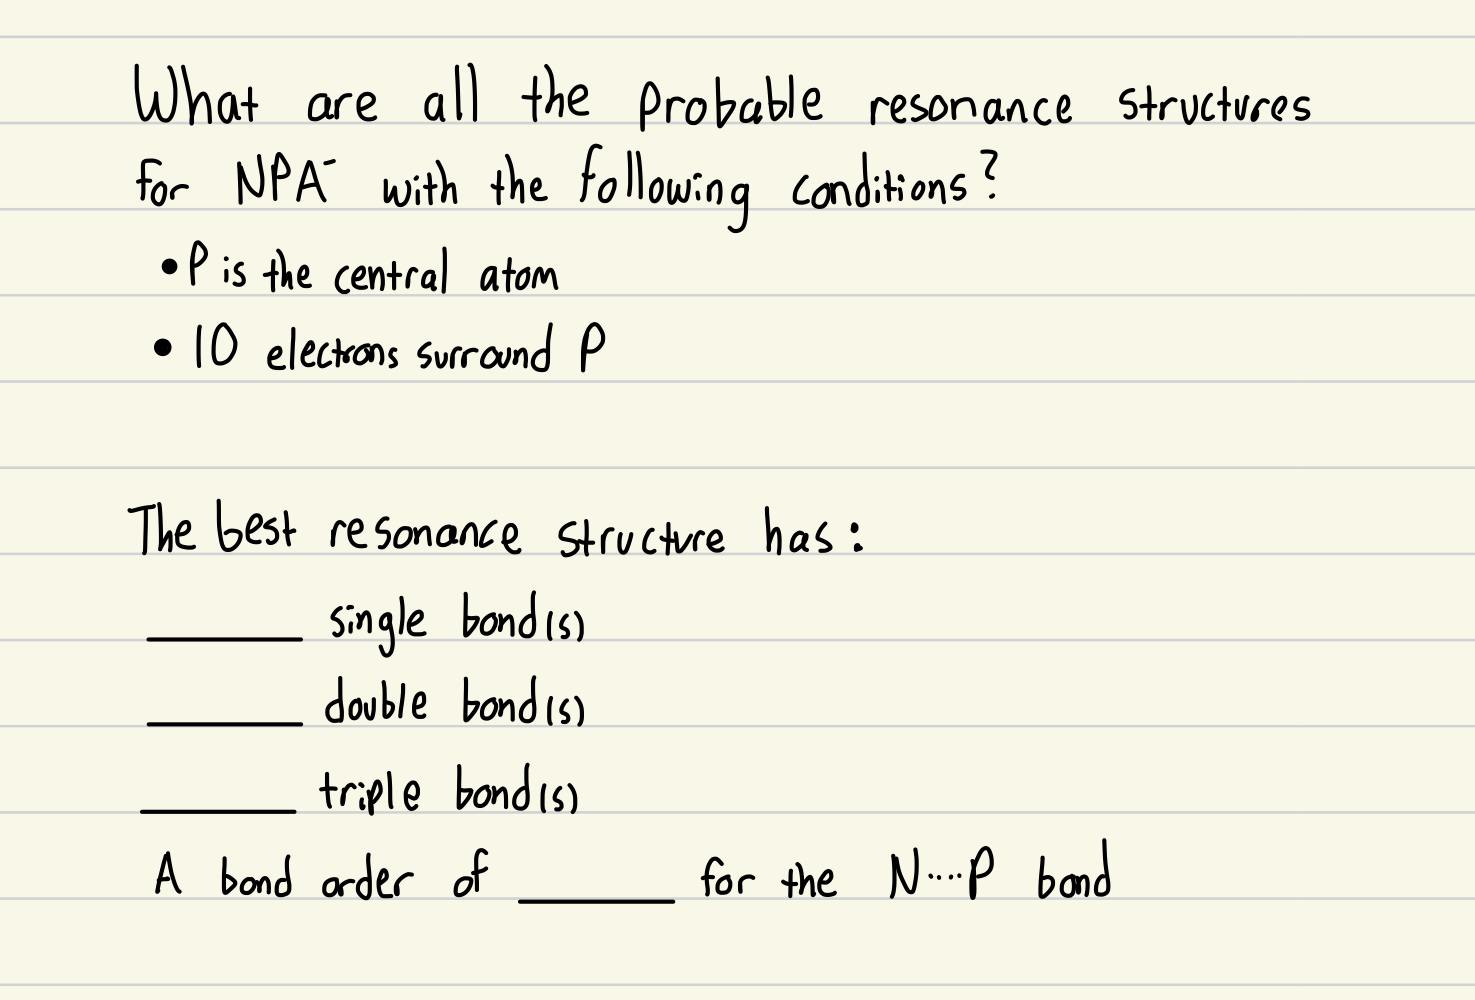 What are all the probable resonance structures
for NPA⁻ with the following conditions?
• P is the central atom
• 10 electrons surround P
The best resonance structure has:
______ single bond(s)
______ double bond(s)
______ triple bond(s)
A bond order of ______ for the N····P bond